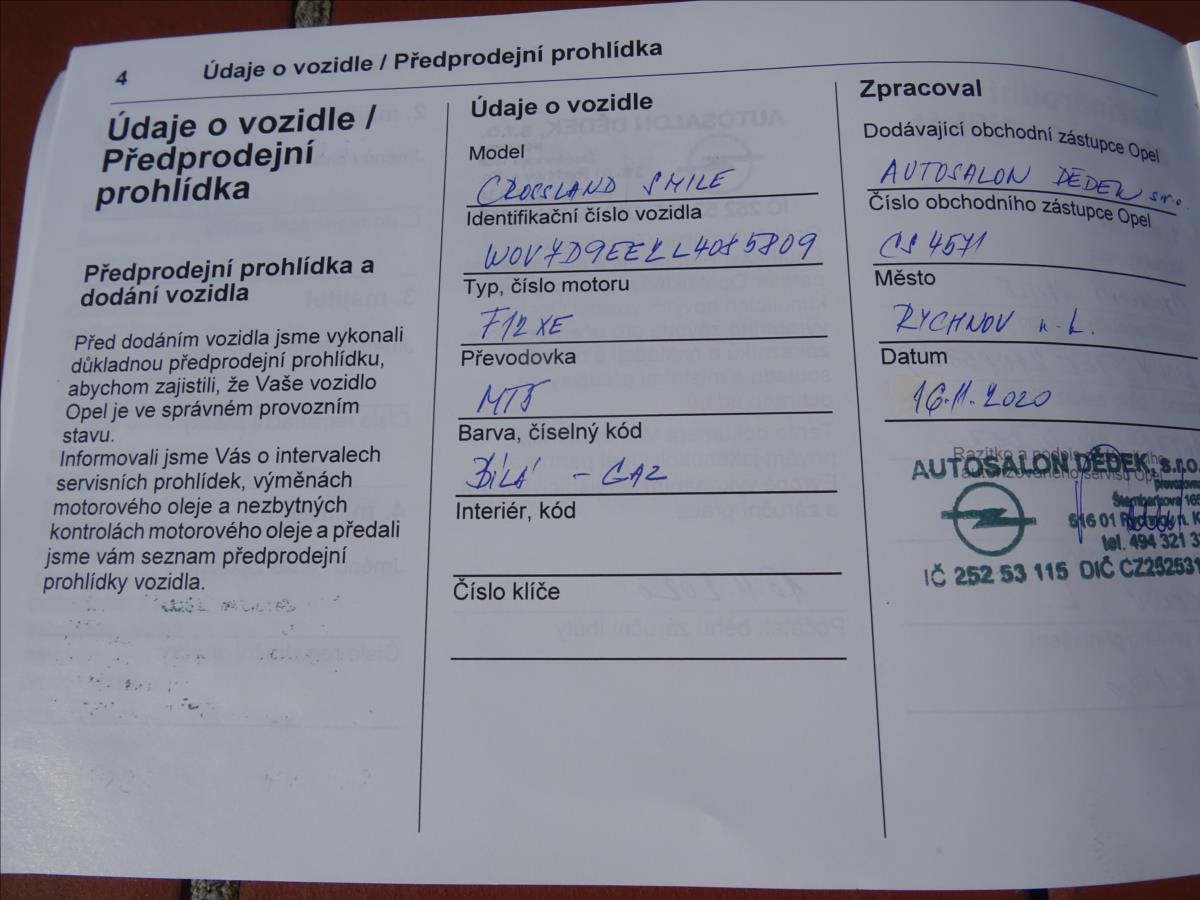 4
Údaje o vozidle / Předprodejní prohlídka
Údaje o vozidle /
Předprodejní
prohlídka
Předprodejní prohlídka a
dodání vozidla
Před dodáním vozidla jsme vykonali
důkladnou předprodejní prohlídku,
abychom zajistili, že Vaše vozidlo
Opel je ve správném provozním
stavu.
Informovali jsme Vás o intervalech
servisních prohlídek, výměnách
motorového oleje a nezbytných
kontrolách motorového oleje a předali
jsme vám seznam předprodejní
prohlídky vozidla.
Údaje o vozidle
Model
CROSSLAND SMILE
Identifikační číslo vozidla
Typ, číslo motoru
F12XE
Převodovka
MT5
Barva, číselný kód
BÍLÁ - GAZ
Interiér, kód
Číslo klíče
Zpracoval
Dodávající obchodní zástupce Opel
AUTOSALON DĚDEK s.r.o.
Číslo obchodního zástupce Opel
CS 4571
Město
RYCHNOV n.k.
Datum
16.11.2020
Razítko a podpis
AUTOSALON DĚDEK, s.r.o.
516 01 Rychnov n. K
tel. 494 321 3
IČ 252 53 115 DIČ CZ252531